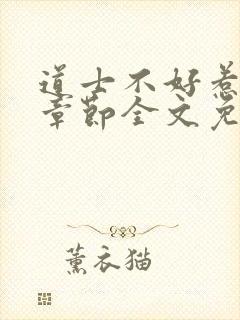 道士不好惹
章節全文免
薰衣猫